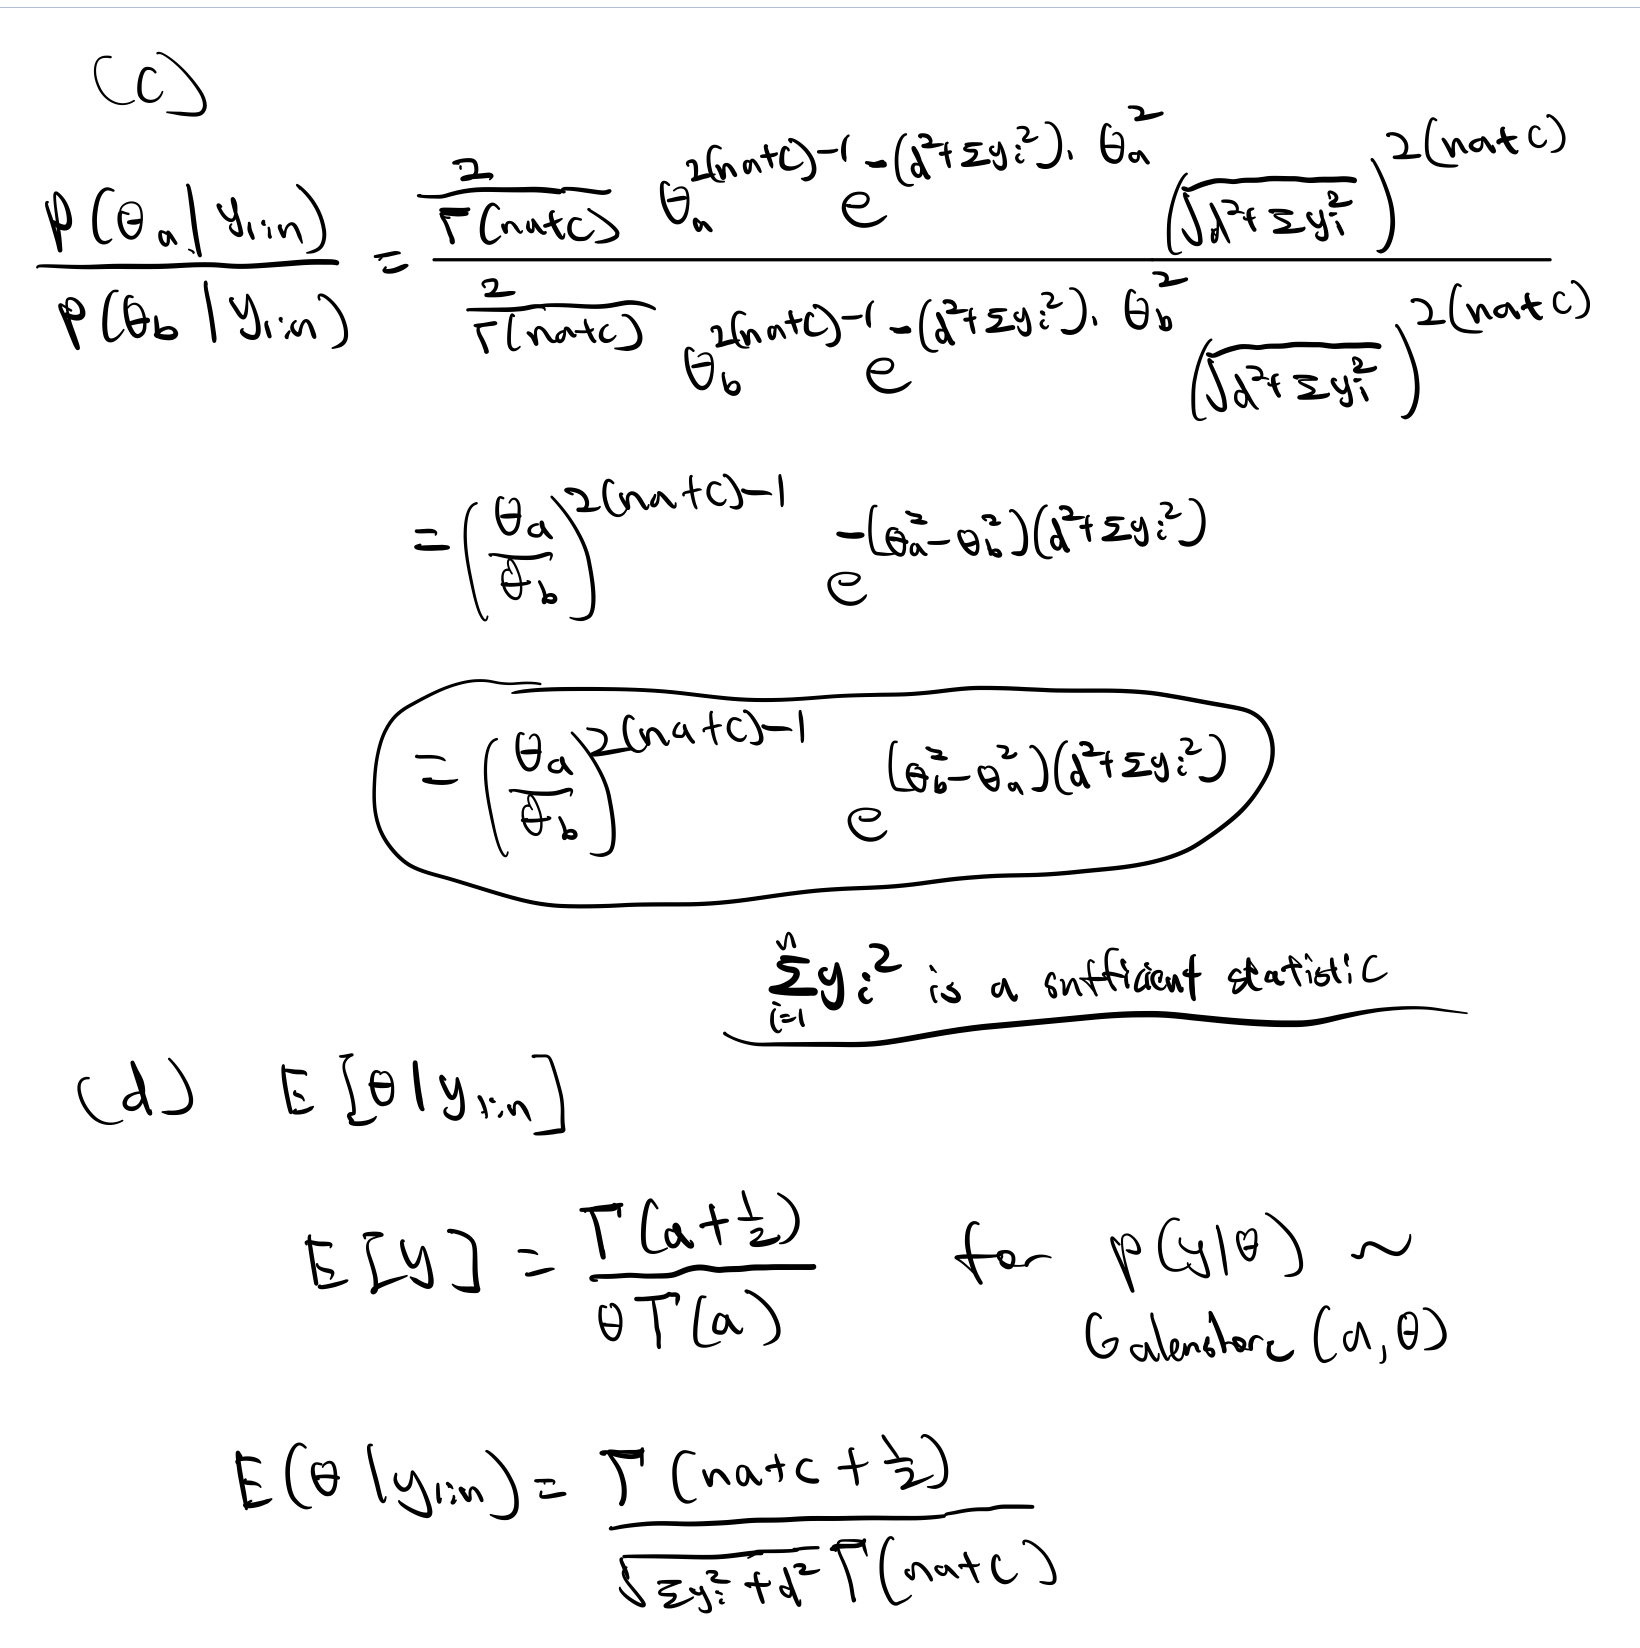 (c)
p(θ_a | y_{1:n}) / p(θ_b | y_{1:n}) = [2/Γ(na+c) θ_a^{2(na+c)-1} e^{-(d²+Σy_i²)·θ_a²} (√(d²+Σy_i²))^{2(na+c)}] / [2/Γ(na+c) θ_b^{2(na+c)-1} e^{-(d²+Σy_i²)·θ_b²} (√(d²+Σy_i²))^{2(na+c)}]
= (θ_a/θ_b)^{2(na+c)-1} e^{-(θ_a²-θ_b²)(d²+Σy_i²)}
= (θ_a/θ_b)^{2(na+c)-1} e^{(θ_b²-θ_a²)(d²+Σy_i²)}
Σ_{i=1}^{n} y_i² is a sufficient statistic
(d) E[θ|y_{1:n}]
E[y] = Γ(a+1/2) / θΓ(a) for p(y|θ) ~
Galenshore (a,θ)
E(θ|y_{1:n}) = Γ(na+c+1/2) / √(Σy_i²+d²) Γ(na+c)